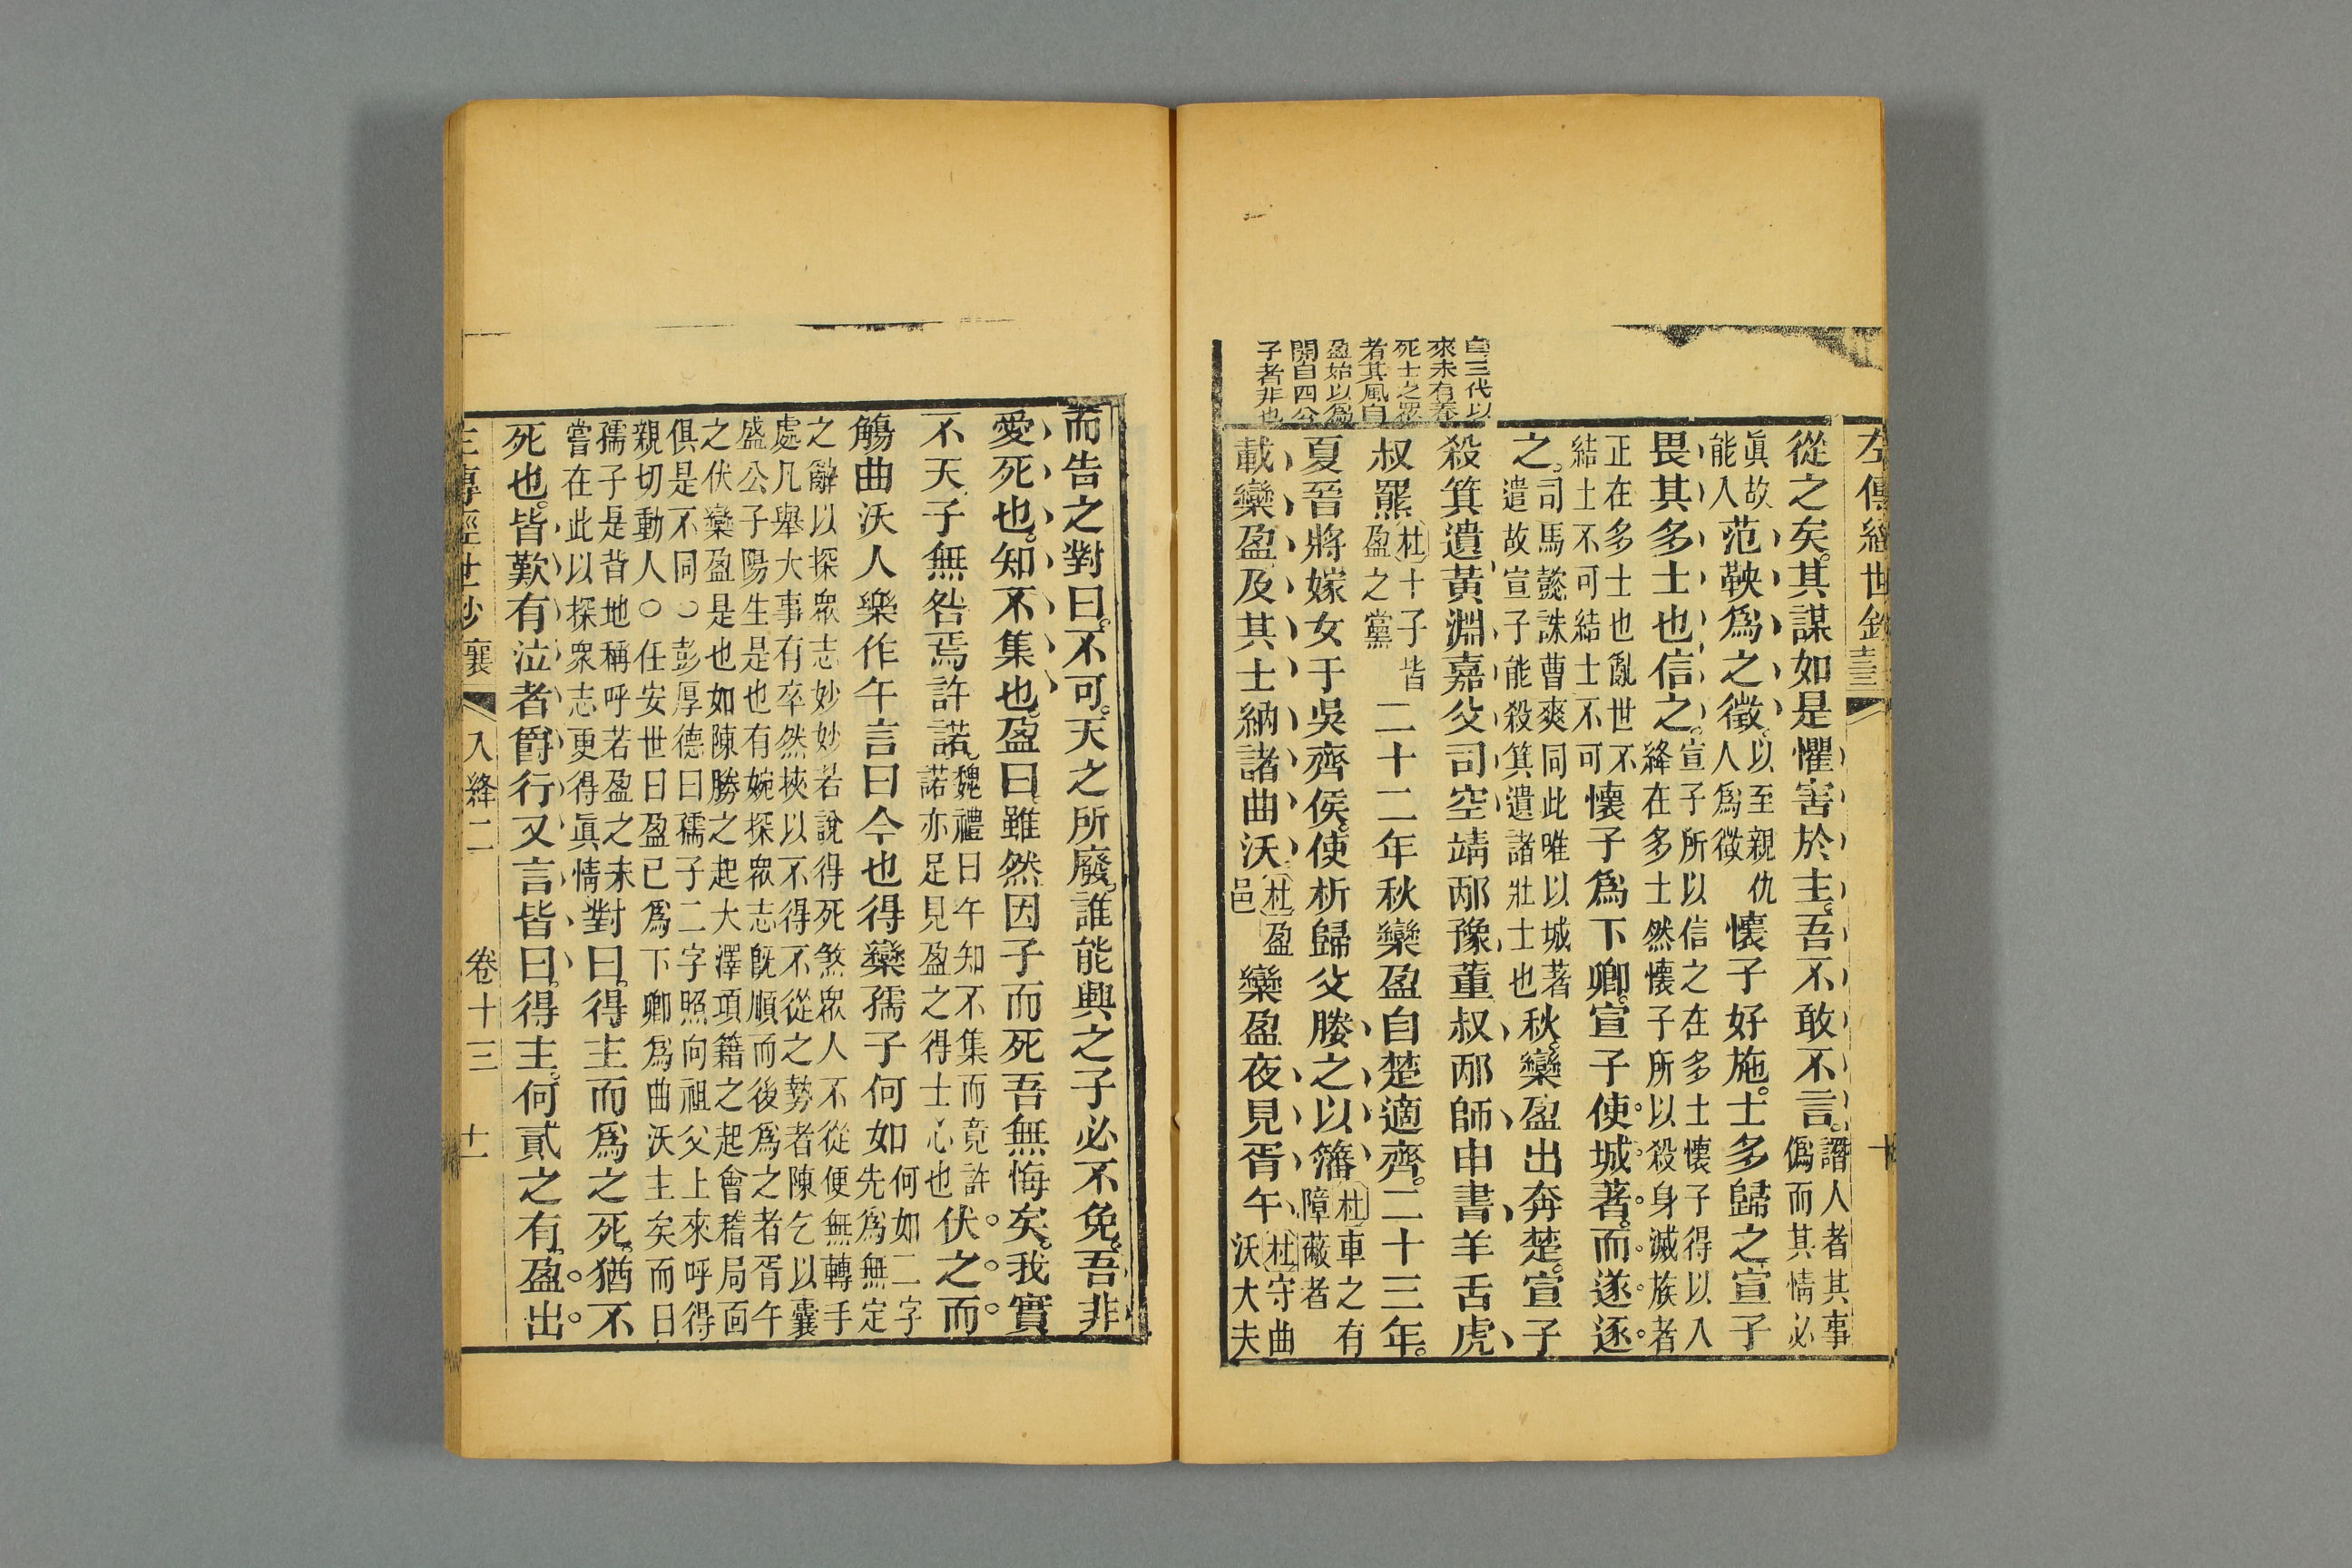 左傳經世鈔 十
從之矣其謀如是懼害於主吾不敢不言譖人者其事僞而其情必
眞故能入范鞅爲之徵以至親仇人爲徵懷子好施士多歸之宣子
畏其多士也信之宣子所以信之在多士懷子得以入絳在多士然懷子所以殺身滅族者
正在多士也亂世不結士不可結士不可懷子爲下卿宣子使城著而遂逐
之司馬懿誅曹爽同此唯以城著遣故宣子能殺箕遺諸壯士也秋欒盈出奔楚宣子
殺箕遺黃淵嘉父司空靖邴豫董叔邴師申書羊舌虎
叔羆杜十子皆盈之黨二十二年秋欒盈自楚適齊二十三年
夏晉將嫁女于吳齊侯使析歸父媵之以籓杜車之有障蔽者
載欒盈及其士納諸曲沃杜盈邑欒盈夜見胥午杜守曲沃大夫
自三代以
來未有養
死士之眾
者其風自
盈始以爲
開自四公
子者非也
而告之對曰不可天之所廢誰能興之子必不免吾非
愛死也知不集也盈曰雖然因子而死吾無悔矣我實
不天子無咎焉許諾魏禮曰午知不集而竟許諾亦足見盈之得士心也伏之而
觴曲沃人樂作午言曰今也得欒孺子何如何如二字先爲無定
之辭以探眾志妙妙若說得死煞眾人不從便無轉手
處凡舉大事有卒然挾以不得不從之勢者陳乞以囊
盛公子陽生是也有婉探眾志旣順而後爲之者胥午
之伏欒盈是也如陳勝之起大澤項籍之起會稽局面
俱是不同○彭厚德曰孺子二字照向祖父上來呼得
親切動人○任安世曰盈已爲下卿爲曲沃主矣而曰
孺子是昔地稱呼若盈之未嘗在此以探眾志更得眞情對曰得主而爲之死猶不
死也皆歎有泣者爵行又言皆曰得主何貳之有盈出
左傳經世鈔 襄 入絳二 卷十三 十一